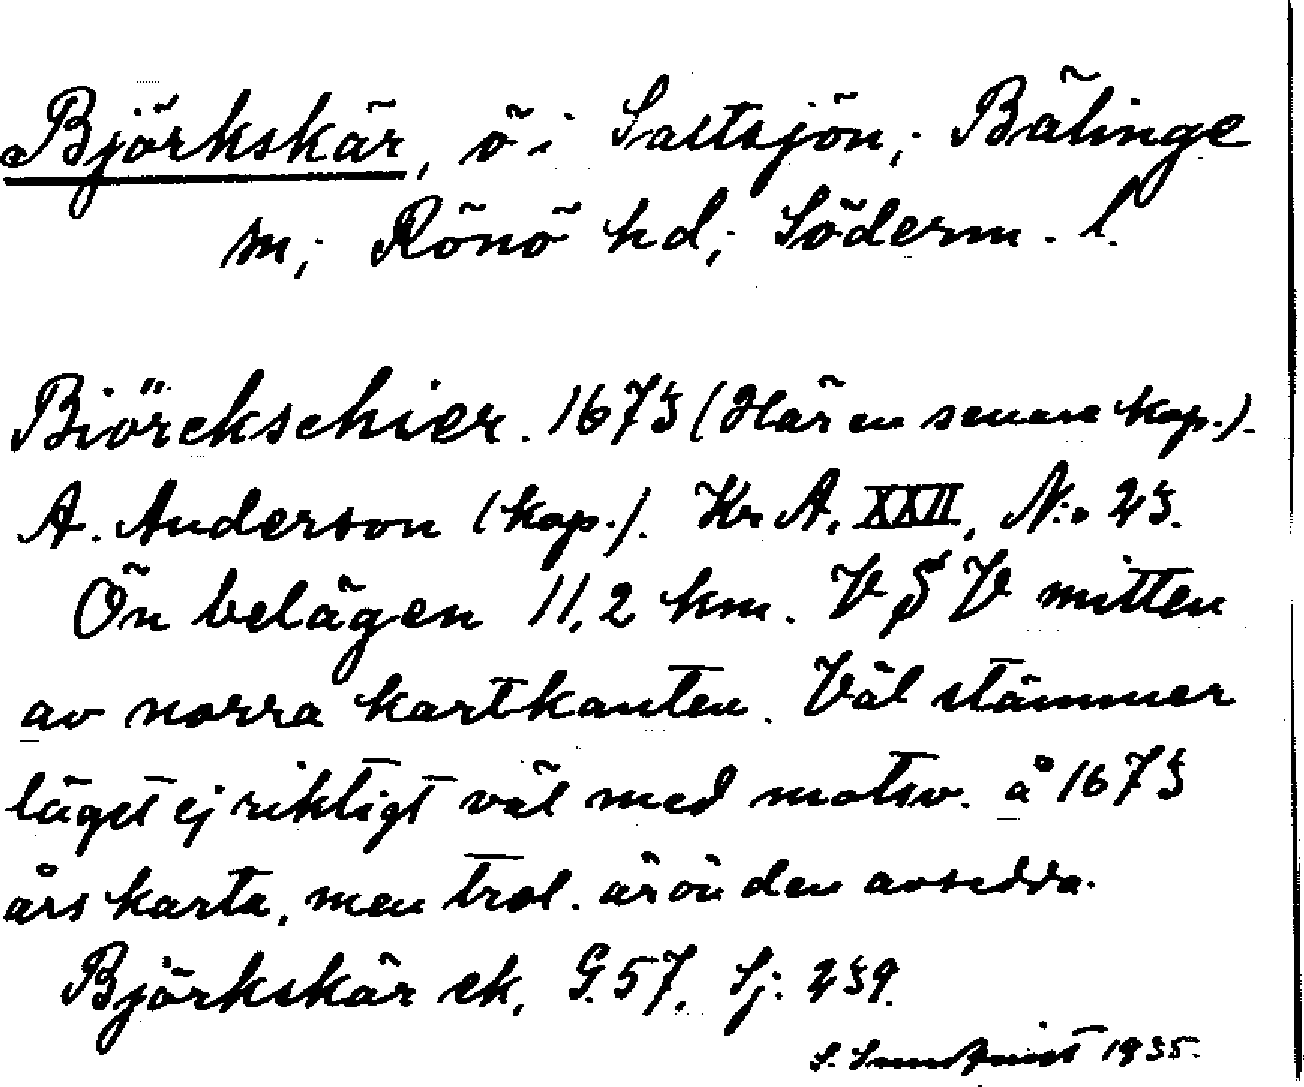 Björkskär, ö i Saltsjön; Bälinge
sn; Rönö hd; Söderm. l.
Biörckschier. 1673 (Här en senare kop.).
A. Anderson (kop.). Kr A. XXII, N:o 23.
Ön belägen 11,2 km. V S V mitten
av norra kartkanten. Väl stämmer
läget ej riktigt väl med motsv. å 1673
års karta, men trol. är ön den avsedda.
Björkskär ek. G. 57. Sj: 239.
1935.